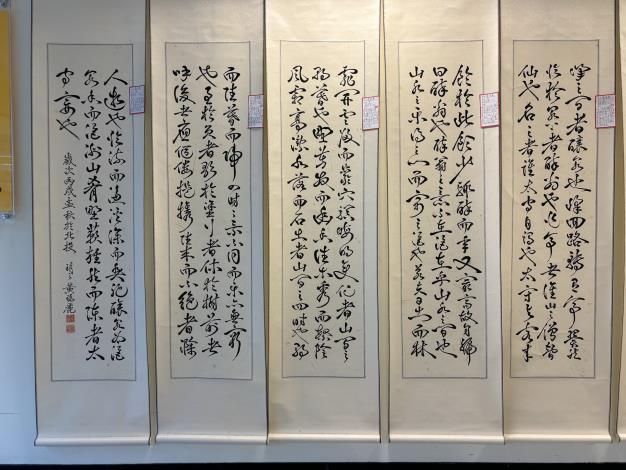 峯之間者釀泉也峰回路轉有亭翼然
臨於泉上者醉翁亭也作亭者誰山之僧智
仙也名之者誰太守自謂也太守與客來
飲於此飲少輒醉而年又最高故自號
曰醉翁也醉翁之意不在酒在乎山水之間也
山水之樂得之心而寓之酒也若夫日出而林
霏開雲歸而巖穴暝晦明變化者山間之
朝暮也野芳發而幽香佳木秀而繁陰
風霜高潔水落而石出者山間之四時也朝
而往暮而歸四時之景不同而樂亦無窮
也至於負者歌於塗行者休於樹前者
呼後者應傴僂提攜往來而不絕者滁
人遊也臨溪而漁溪深而魚肥釀泉為酒
泉香而酒洌山肴野蔌雜然而陳者太
守宴也
歲次丙戌孟秋於北投